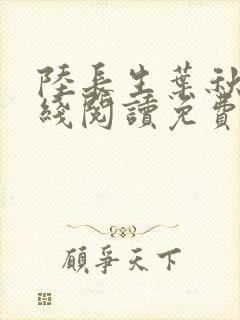 陸長生葉秋
綫閱讀免費
顧爭天下